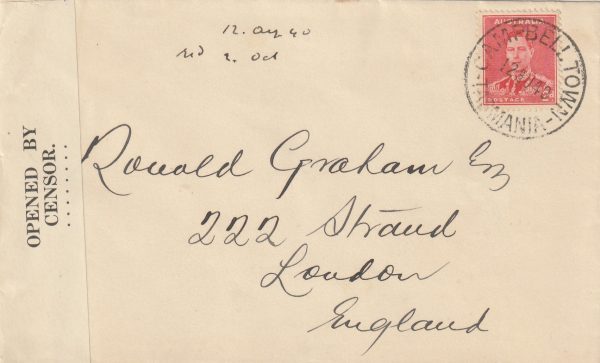 12. Aug 40
rcd 2. Oct
AUSTRALIA
POSTAGE
CAMPBELL TOWN
TASMANIA
OPENED BY
CENSOR.
Ronald Graham Esq
222 Strand
London
England